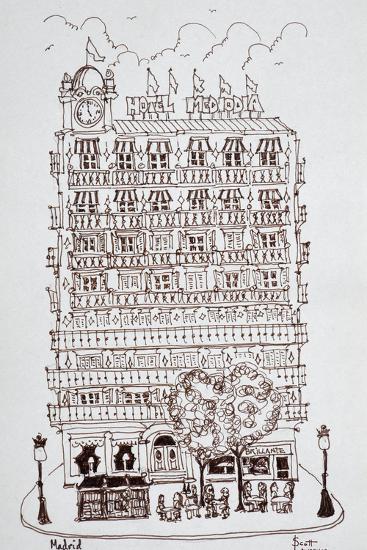 HOTEL MEDIODIA
BRILLANTE
Madrid
Scott